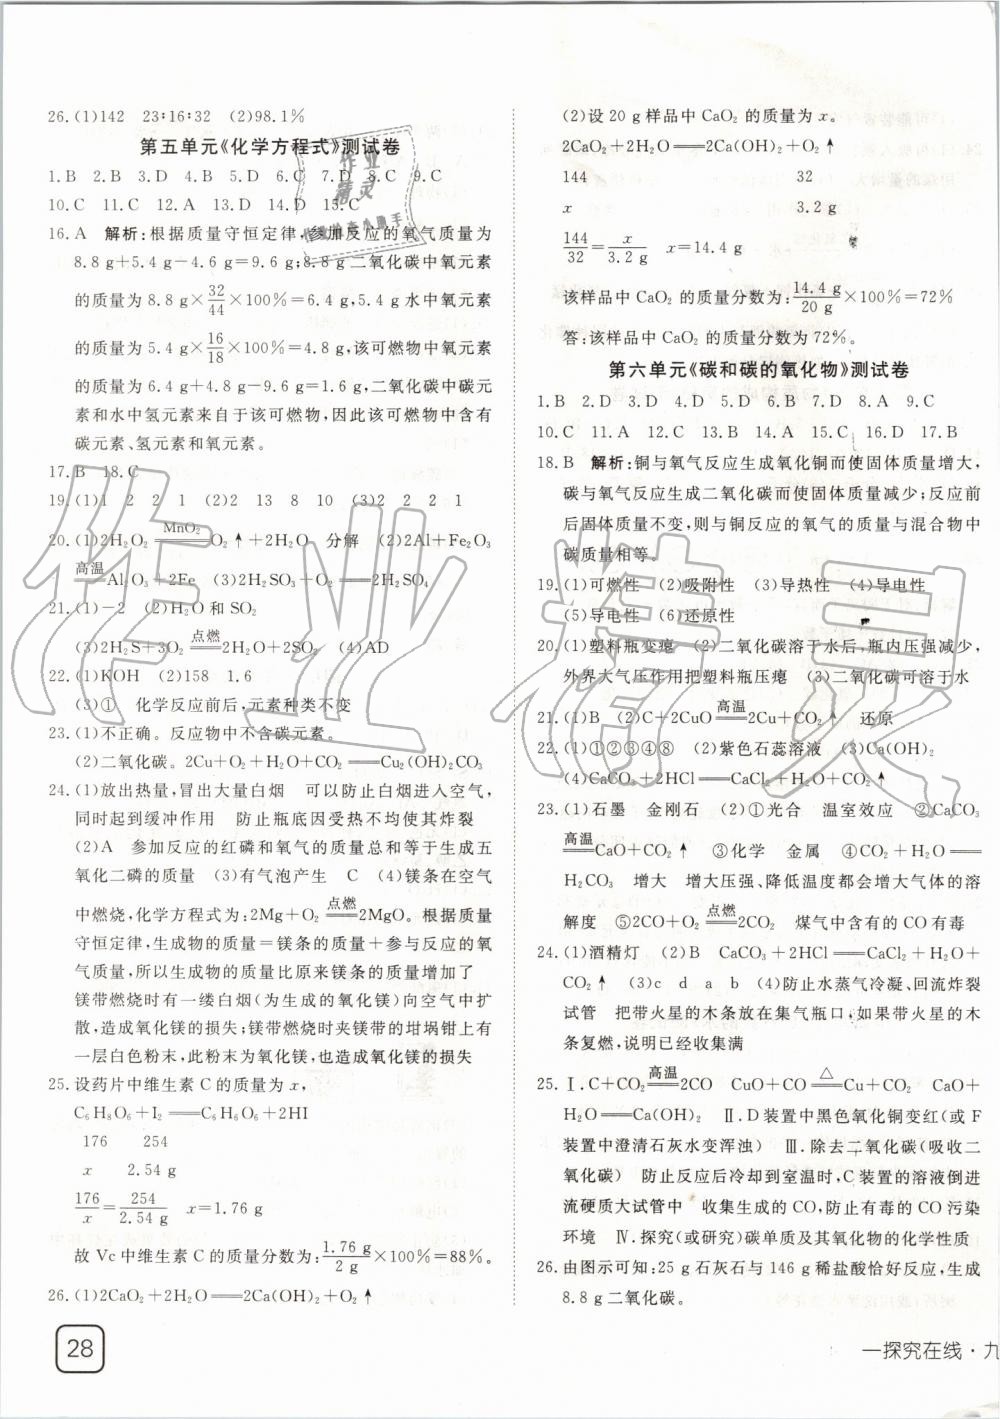 26.(1)142　23∶16∶32　(2)98.1%
第五单元《化学方程式》测试卷
1.B　2.B　3.D　4.B　5.D　6.C　7.D　8.C　9.C
10.C　11.C　12.A　13.D　14.D　15.C
16.A　解析:根据质量守恒定律,参加反应的氧气质量为
8.8 g+5.4 g-4.6 g=9.6 g;8.8 g二氧化碳中氧元素
的质量为8.8 g×32/44×100%=6.4 g,5.4 g水中氧元素
的质量为5.4 g×16/18×100%=4.8 g,该可燃物中氧元素
的质量为6.4 g+4.8 g-9.6 g=1.6 g,二氧化碳中碳元
素和水中氢元素来自于该可燃物,因此该可燃物中含有
碳元素、氢元素和氧元素。
17.B　18.C
19.(1)1　2　2　1　(2)2　13　8　10　(3)2　2　2　1
20.(1)2H₂O₂ =MnO₂= O₂↑+2H₂O　分解　(2)2Al+Fe₂O₃
=高温= Al₂O₃+2Fe　(3)2H₂SO₃+O₂══2H₂SO₄
21.(1)-2　(2)H₂O和SO₂
(3)2H₂S+3O₂ =点燃= 2H₂O+2SO₂　(4)AD
22.(1)KOH　(2)158　1.6
(3)①　化学反应前后,元素种类不变
23.(1)不正确。反应物中不含碳元素。
(2)二氧化碳。2Cu+O₂+H₂O+CO₂══Cu₂(OH)₂CO₃
24.(1)放出热量,冒出大量白烟　可以防止白烟进入空气,
同时起到缓冲作用　防止瓶底因受热不均使其炸裂
(2)A　参加反应的红磷和氧气的质量总和等于生成五
氧化二磷的质量　(3)有气泡产生　C　(4)镁条在空气
中燃烧,化学方程式为:2Mg+O₂ =点燃= 2MgO。根据质量
守恒定律,生成物的质量=镁条的质量+参与反应的氧
气质量,所以生成物的质量比原来镁条的质量增加了
镁带燃烧时有一缕白烟(为生成的氧化镁)向空气中扩
散,造成氧化镁的损失;镁带燃烧时夹镁带的坩埚钳上有
一层白色粉末,此粉末为氧化镁,也造成氧化镁的损失
25.设药片中维生素C的质量为x,
C₆H₈O₆+I₂══C₆H₆O₆+2HI
176　254
x　2.54 g
176/x=254/2.54 g　x=1.76 g
故Vc中维生素C的质量分数为:1.76 g/2 g×100%=88%。
26.(1)2CaO₂+2H₂O══2Ca(OH)₂+O₂↑
28
(2)设20 g样品中CaO₂的质量为x。
2CaO₂+2H₂O══2Ca(OH)₂+O₂↑
144　32
x　3.2 g
144/32=x/3.2 g　x=14.4 g
该样品中CaO₂的质量分数为:14.4 g/20 g×100%=72%
答:该样品中CaO₂的质量分数为72%。
第六单元《碳和碳的氧化物》测试卷
1.B　2.D　3.D　4.D　5.B　6.D　7.D　8.A　9.C
10.C　11.A　12.C　13.B　14.A　15.C　16.D　17.B
18.B　解析:铜与氧气反应生成氧化铜而使固体质量增大,
碳与氧气反应生成二氧化碳而使固体质量减少;反应前
后固体质量不变,则与铜反应的氧气的质量与混合物中
碳质量相等。
19.(1)可燃性　(2)吸附性　(3)导热性　(4)导电性
(5)导电性　(6)还原性
20.(1)塑料瓶变瘪　(2)二氧化碳溶于水后,瓶内压强减少,
外界大气压作用把塑料瓶压瘪　(3)二氧化碳可溶于水
21.(1)B　(2)C+2CuO =高温= 2Cu+CO₂↑　还原
22.(1)①②③④⑧　(2)紫色石蕊溶液　(3)Ca(OH)₂
(4)CaCO₃+2HCl══CaCl₂+H₂O+CO₂↑
23.(1)石墨　金刚石　(2)①光合　温室效应　②CaCO₃
=高温= CaO+CO₂↑　③化学　金属　④CO₂+H₂O══
H₂CO₃　增大　增大压强、降低温度都会增大气体的溶
解度　⑤2CO+O₂ =点燃= 2CO₂　煤气中含有的CO有毒
24.(1)酒精灯　(2)B　CaCO₃+2HCl══CaCl₂+H₂O+
CO₂↑　(3)c　d　a　b　(4)防止水蒸气冷凝、回流炸裂
试管　把带火星的木条放在集气瓶口,如果带火星的木
条复燃,说明已经收集满
25.Ⅰ.C+CO₂ =高温= 2CO　CuO+CO =△= Cu+CO₂　CaO+
H₂O══Ca(OH)₂　Ⅱ.D装置中黑色氧化铜变红(或F
装置中澄清石灰水变浑浊)　Ⅲ.除去二氧化碳(吸收二
氧化碳)　防止反应后冷却到室温时,C装置的溶液倒进
流硬质大试管中　收集生成的CO,防止有毒的CO污染
环境　Ⅳ.探究(或研究)碳单质及其氧化物的化学性质
26.由图示可知:25 g石灰石与146 g稀盐酸恰好反应,生成
8.8 g二氧化碳。
一探究在线·九
作业精灵